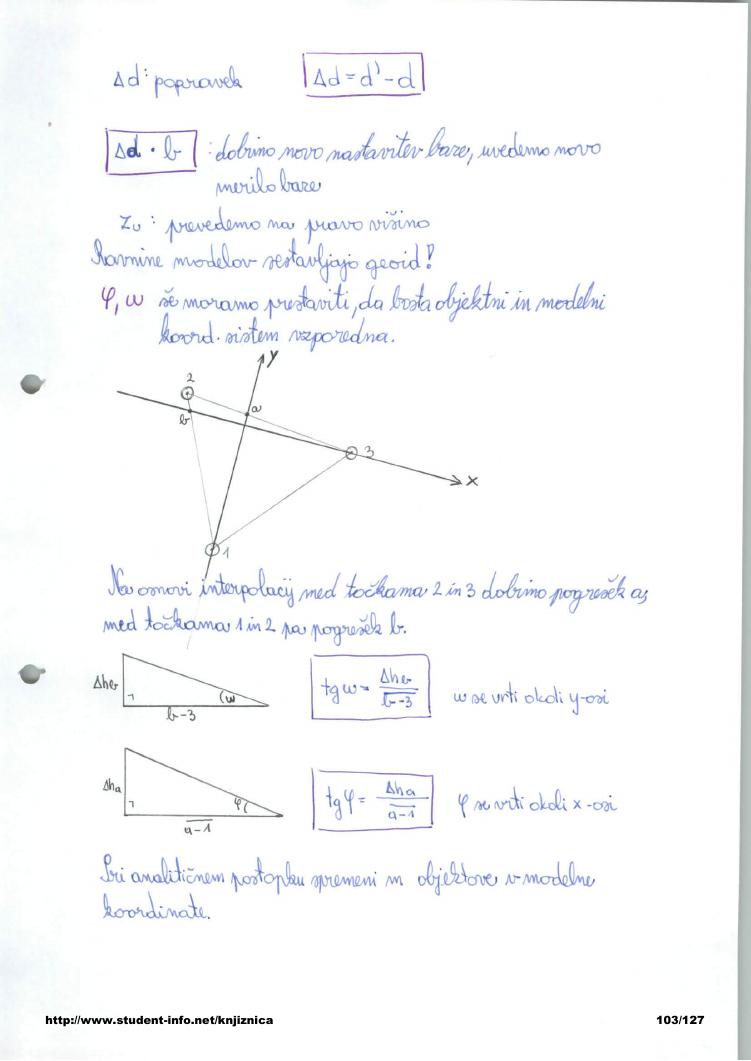 Δd : popravek   Δd = d' - d
Δd · b : dobimo novo nastavitev baze, uvedemo novo
merilo baze
Zv : prevedemo na pravo višino
Ravnine modelov sestavljajo geoid!
φ, ω še moramo prestaviti, da bosta objektni in modelni
koord. sistem vzporedna.
y
2
a
b
3
x
1
Na osnovi interpolacij med točkama 2 in 3 dobimo pogrešek a,
med točkama 1 in 2 pa pogrešek b.
Δhb   ω   b-3   tg ω = Δhb / b-3   ω se vrti okoli y-osi
Δha   φ   a-1   tg φ = Δha / a-1   φ se vrti okoli x-osi
Pri analitičnem postopku spremeni m objektove v modelne
koordinate.
http://www.student-info.net/knjiznica   103/127